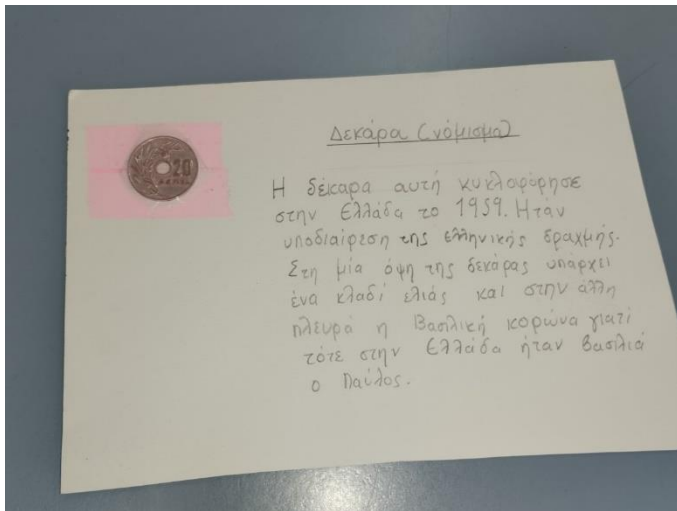 20
ΛΕΠΤΑ
Δεκάρα (νόμισμα)
Η δέκαρα αυτή κυκλοφόρησε
στην Ελλάδα το 1959. Ηταν
υποδιαίρεση της ελληνικής δραχμής.
Στη μία όψη της δεκάρας υπάρχει
ένα κλαδί ελιάς και στην άλλη
πλευρά η Βασιλική κορώνα γιατί
τότε στην Ελλάδα ήταν βασιλιά
ο Παύλος.